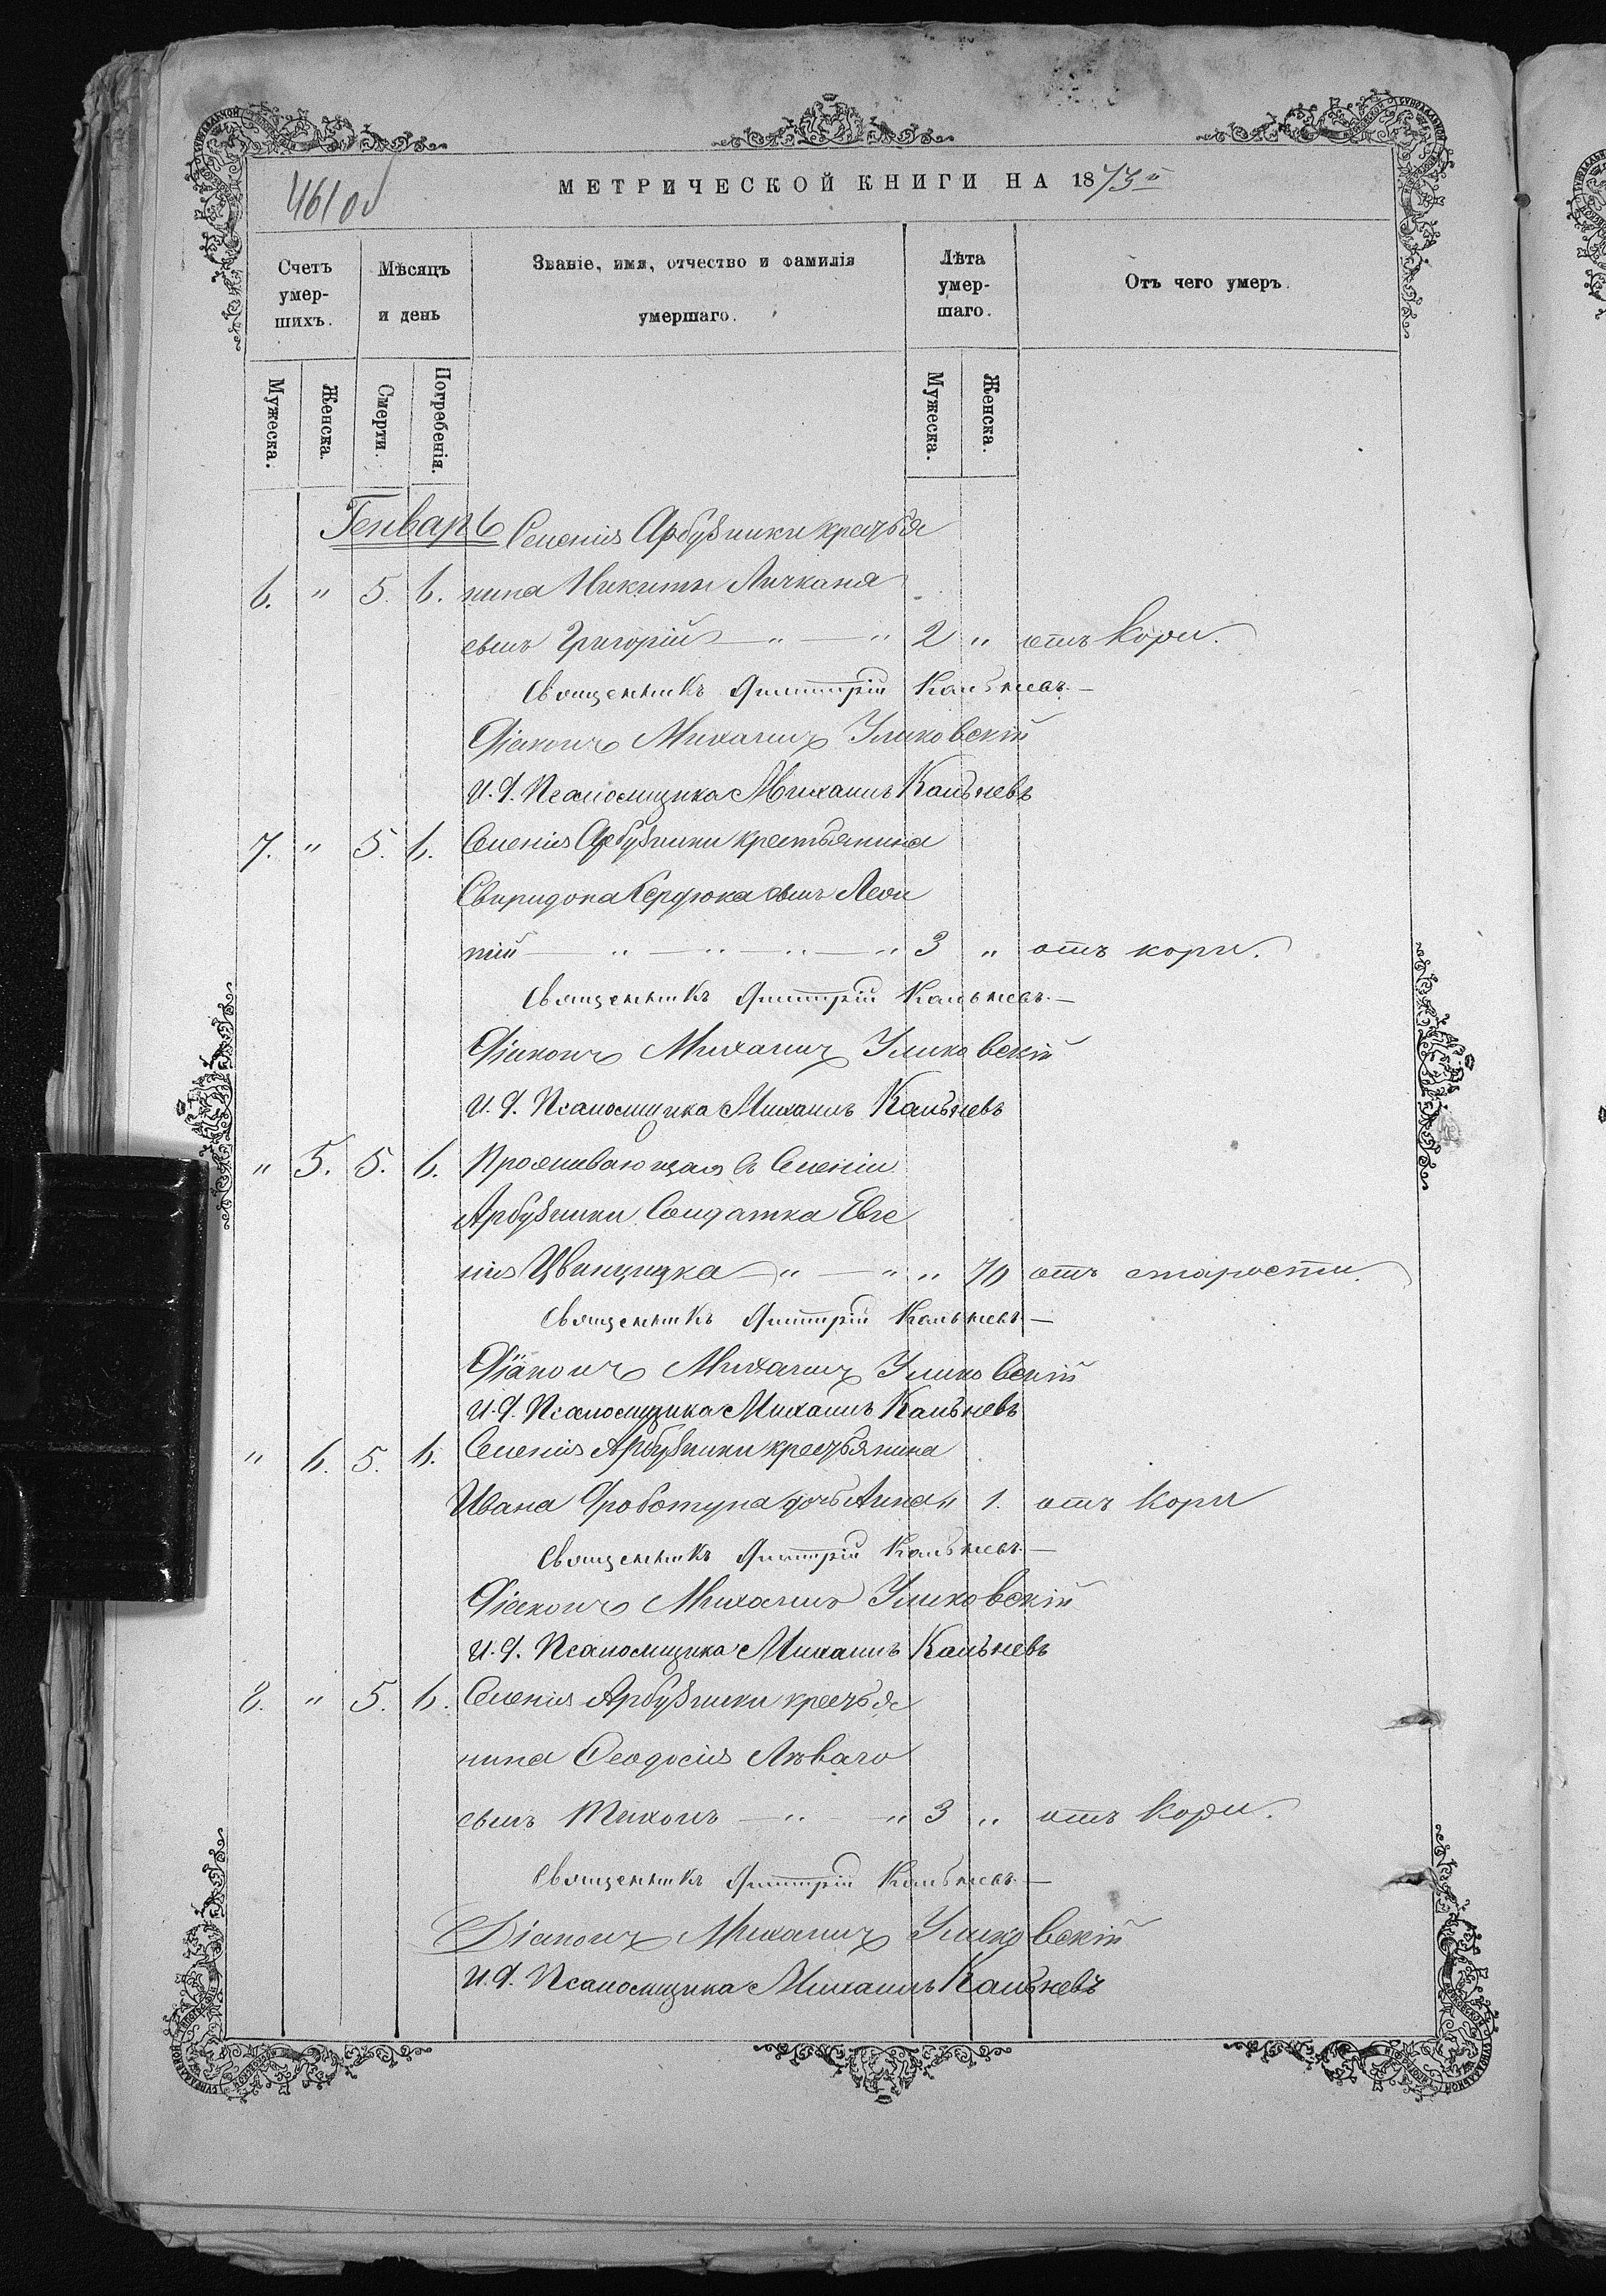 461 об
МЕТРИЧЕСКОЙ КНИГИ НА 1873й
Счетъ умер-шихъ.
Мѣсяцъ и день
Званіе, имя, отчество и фамилія умершаго.
Лѣта умер-шаго.
Отъ чего умеръ.
Мужеска. Женска. Смерти. Погребенія. Мужеска. Женска.
Генварь Селенія Арбузинки крестья
6. " 5. 6. нина Никиты Личкана
сынъ Григорій — " — " 2 " отъ кори.
Священникъ Димитрій Кальневъ. —
Діаконъ Михаилъ Улико вскій
И. Д. Псаломщика Михаилъ Кальневъ
7. " 5. 6. Селенія Арбузинки крестьянина
Свиридона Сердюка сынъ Леон
тій — " — " — " — " 3 " отъ кори.
Священникъ Димитрій Кальневъ. —
Діаконъ Михаилъ Улико вскій
И. Д. Псаломщика Михаилъ Кальневъ
" 5. 5. 6. Проживающая въ Селеніи
Арбузинки Солдатка Евге
нія — " — " " 70 отъ старости.
Священникъ Димитрій Кальневъ. —
Діаконъ Михаилъ Улико вскій
И. Д. Псаломщика Михаилъ Кальневъ
" 6. 5. 6. Селенія Арбузинки крестьянина
Ивана Дроботуна дочь Анна " 1. отъ Кори
Священникъ Димитрій Кальневъ. —
Діаконъ Михаилъ Улико вскій
И. Д. Псаломщика Михаилъ Кальневъ
8. " 5. 6. Селенія Арбузинки крестья
нина Ѳеодосія Лѣваго
сынъ Тихонъ — " — " 3 " отъ Кори.
Священникъ Димитрій Кальневъ. —
Діаконъ Михаилъ Улико вскій
И. Д. Псаломщика Михаилъ Кальневъ